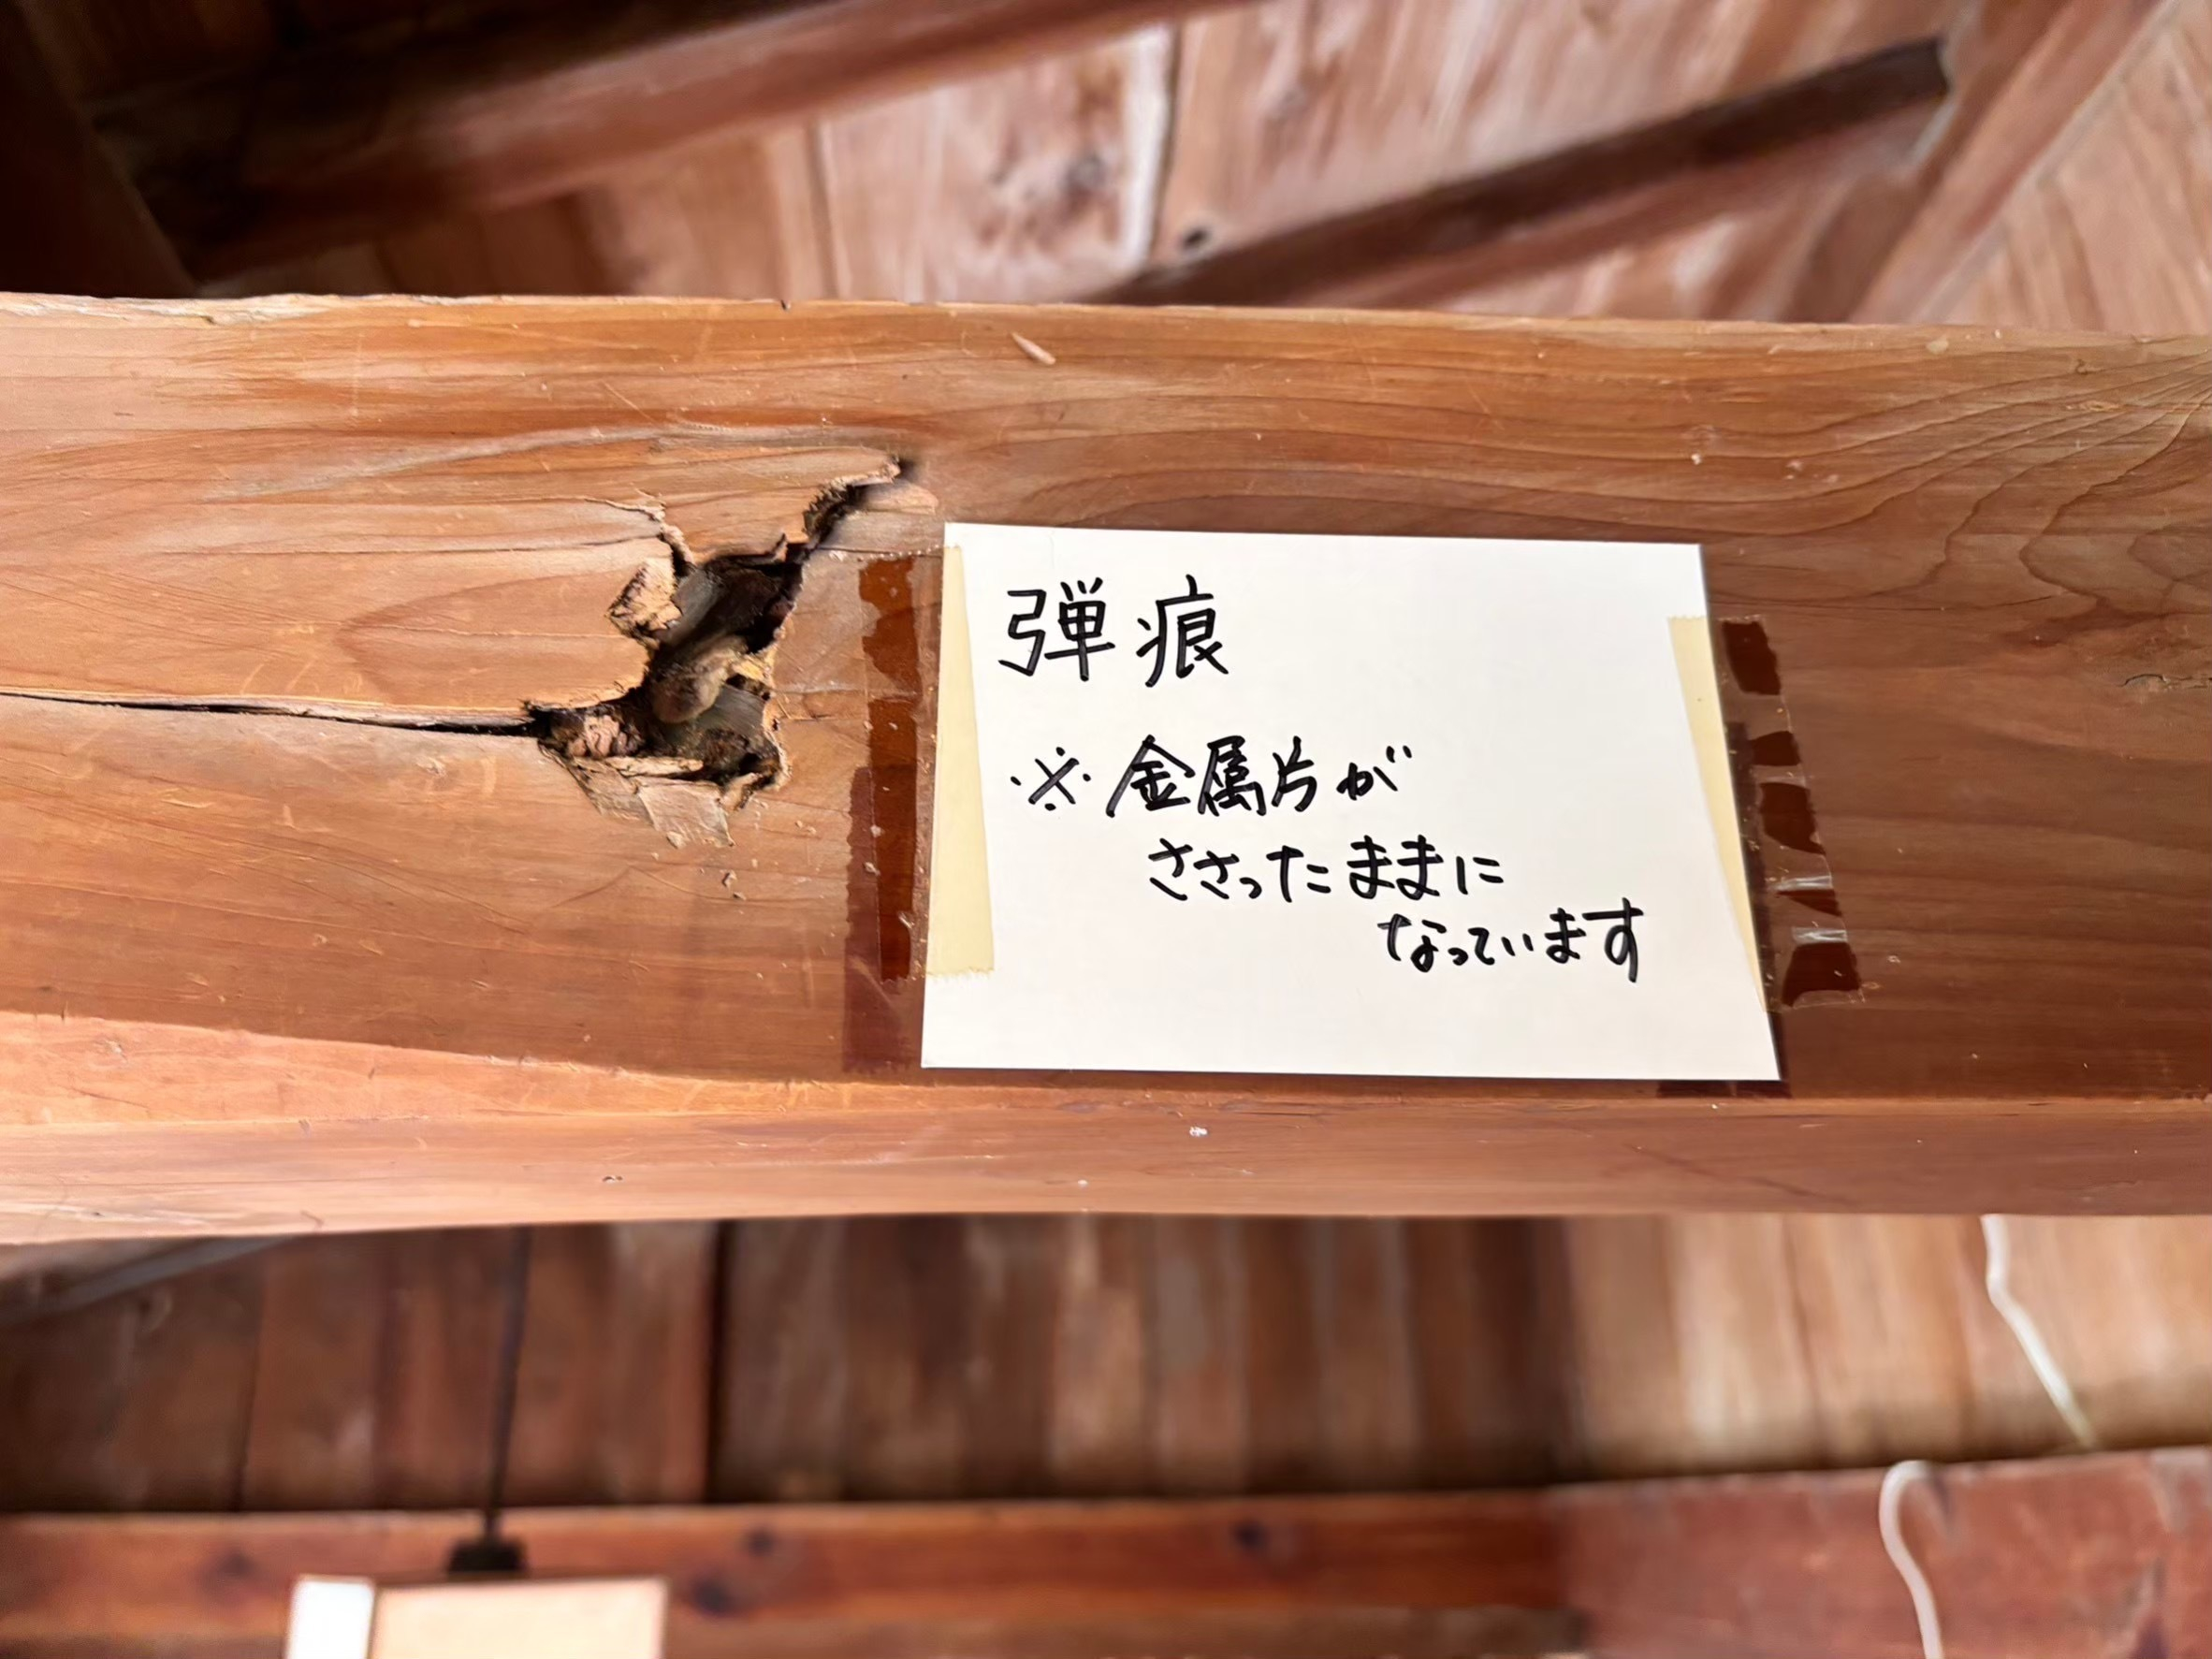 弾痕
※金属片が
ささったままに
なっています